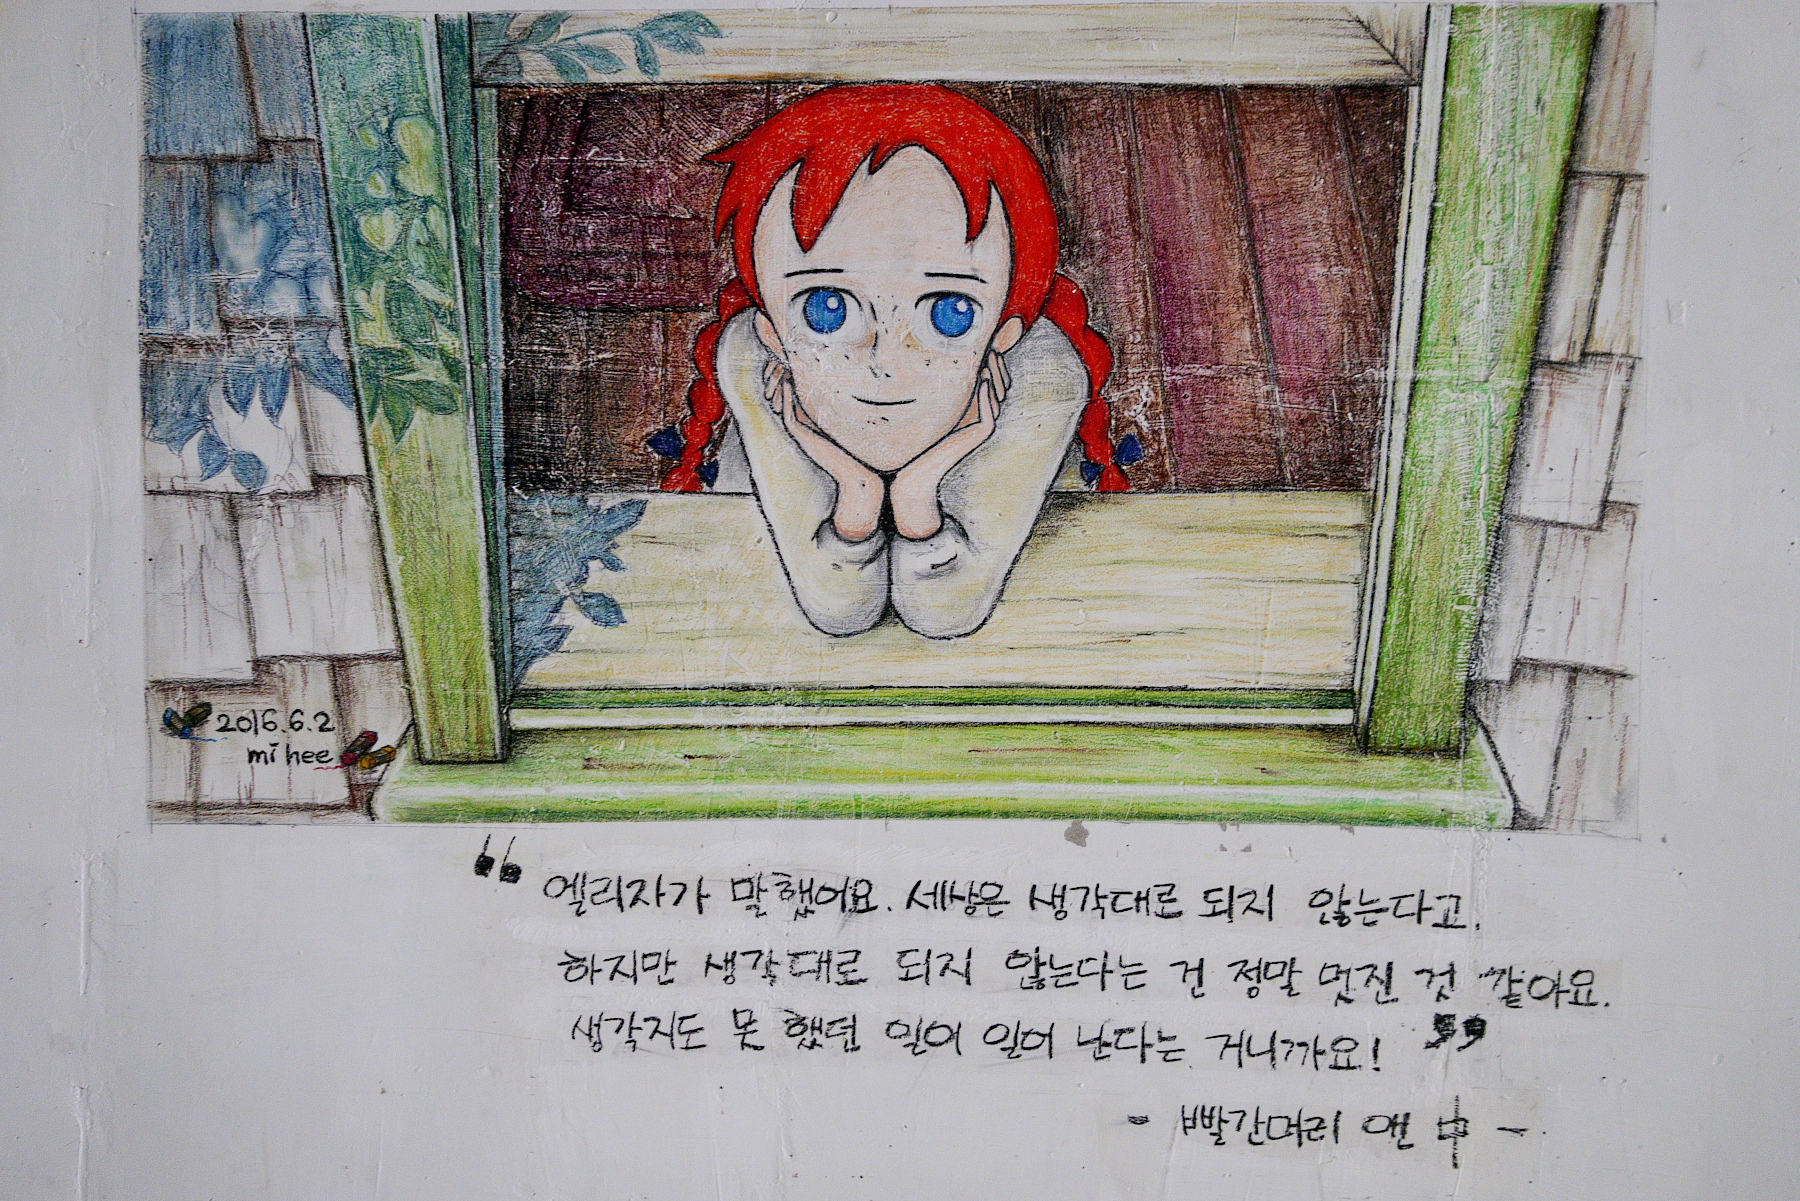 2016.6.2
mi hee
“ 엘리자가 말했어요. 세상은 생각대로 되지 않는다고.
하지만 생각대로 되지 않는다는 건 정말 멋진 것 같아요.
생각지도 못 했던 일이 일어 난다는 거니까요! ”
- 빨간머리 앤 中 -